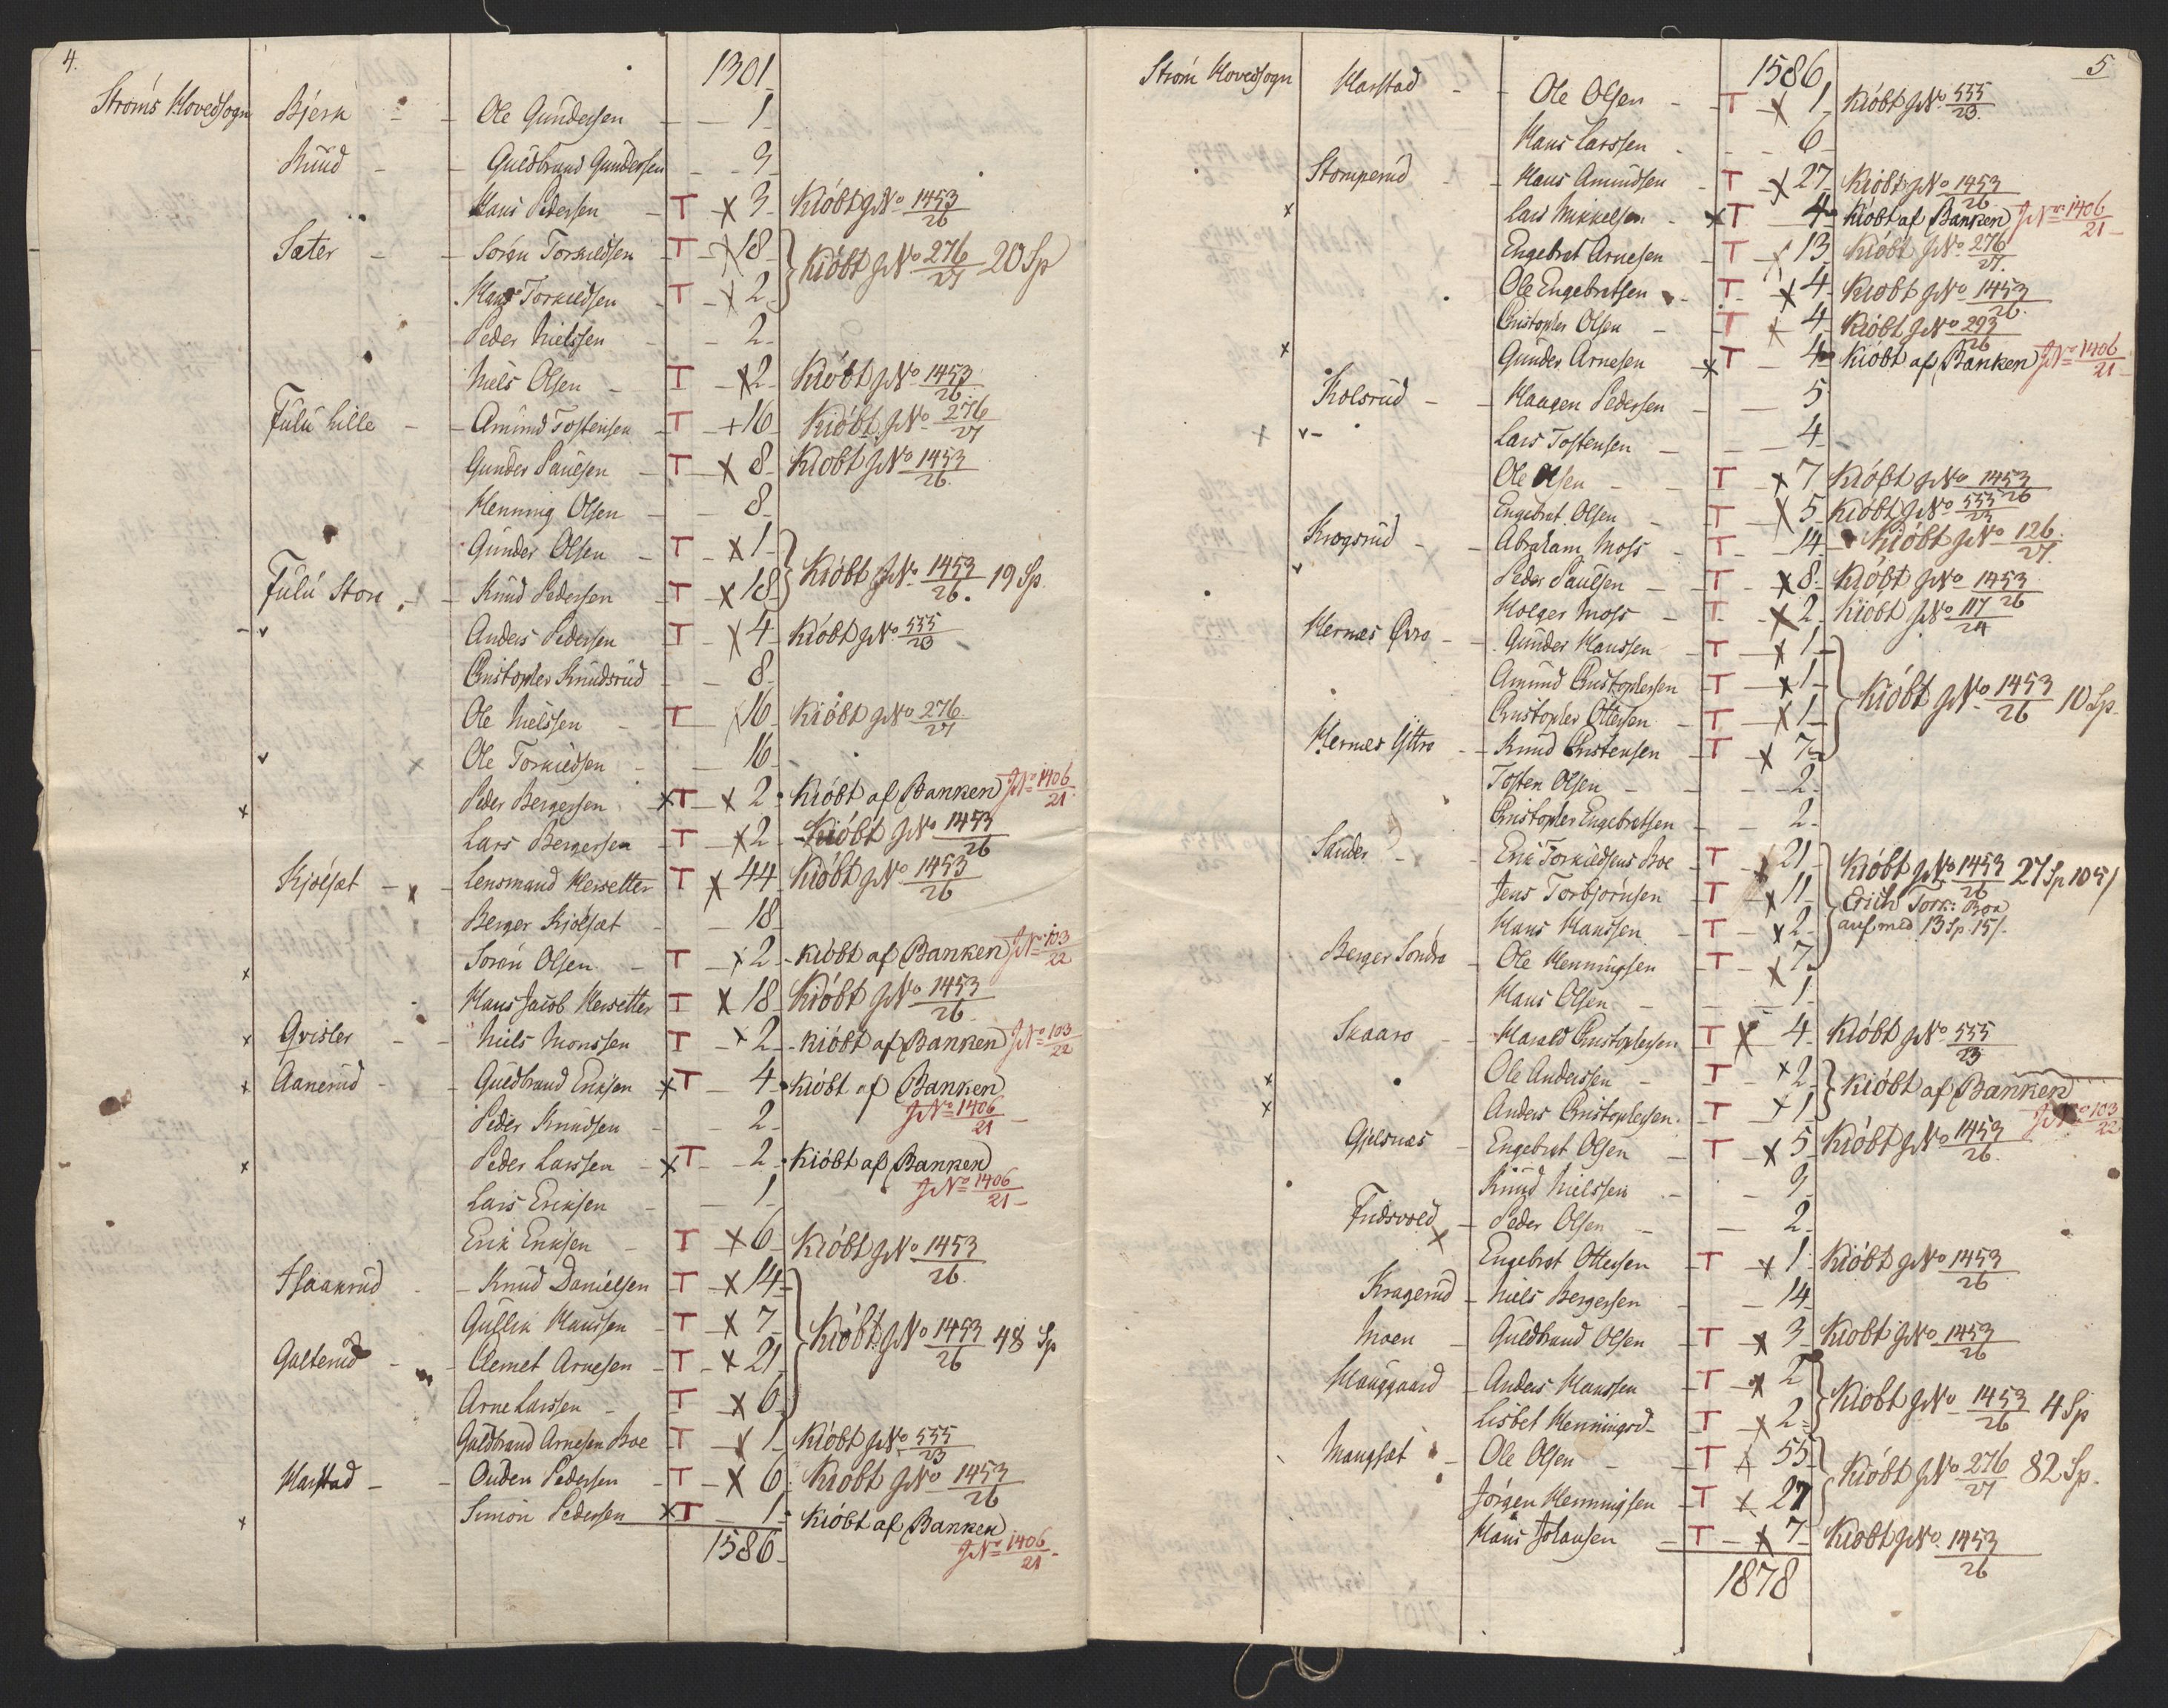 4.
1301
Ströms Hovedsogn Bjerk - - Ole Gundersen - - 1-
Ruud - - Guldbrand Gundersen - - 9-
Hans Pedersen - T - x 3- Kióbt JNo 1453/26
Sæter - - Sören Torkildsen - T - x 18 } Kióbt JNo 276/27 20 Sp
Hans Torkildsen - T - x 2
Peder Nielssen - - 2-
Niels Olsen - T - x 2- Kióbt JNo 1453/26
Fulu Lille - - Amund Tostensen - T - + 16- Kióbt JNo 276/27
Gunder Paulsen - T - x 8- Kióbt JNo 1453/26
Henning Olsen - - 8-
Gunder Olsen - T - x 1- } Kióbt JNo 1453/26. 19 Sp
Fulu Store - - Knud Pedersen - T - x 18
- v Anders Pedersen T - x 4- Kióbt JNo 555/23
Christopher Knudsrud - - 8-
Ole Nielssen - T - 16- Kióbt JNo 276/27
v x Ole Torkildsen - - 16-
x Peder Bergersen xT - x 2- Kióbt af Banken JNo 1406/21
Lars Bergersen - T - x 2- Kióbt JNo 1453/26
Kjölsæt - x - Lensmand Heesetter T x 44 Kióbt JNo 1453/26
Berger Kjölsæt - - 18-
x Sören Olsen - T - x 2- Kióbt af Banken JNo 103/22
Hans Jacob Heesetter T x 18 Kióbt JNo 1453/26
x Qvisler - - Niels Monssen T - x 2- Kióbt af Banken JNo 103/22
x Aanerud - - Guldbrand Eriksen xT - 4- Kióbt af Banken
JNo 1406/21
Peder Knudsen - - 2-
x Peder Larssen - xT - 2- Kióbt af Banken
JNo 1406/21
Lars Eriksen - - 1-
Erik Eriksen - T x 6- Kióbt JNo 1453/26
Isaakrud - - Knud Danielsen T - x 14- } Kióbt JNo 1453/26 48 Sp
Gullik Hanssen - T - x 7-
Galterud - - Clemet Arnesen - T - x 21
Arne Larssen - T x 6
Guldbrand Arnesen Boe - T - x 1- Kióbt JNo 555/23
Harstad - - Ouden Pedersen - T - x 6- Kióbt JNo 1453/26
x Simon Pedersen xT - 1- Kióbt af Banken
JNo 1406/21
1586-
5
1586
Ström Hovedsogn Harstad - - Ole Olsen - - T - x 1- Kióbt JNo 555/23
Hans Larssen - - 6-
Stomperud - - Hans Amundsen - T - x 27- Kióbt JNo 1453/26
x Lars Mikkelsen - xT - 4- Kióbt af Banken JNo 1406/21
Engebret Arnesen - T - x 13 Kióbt JNo 276/27
Ole Engebretsen - T - x 4- Kióbt JNo 1453/26
Christopher Olsen - T - x 4- Kióbt JNo 293/26
x Gunder Arnesen - xT - 4- Kióbt af Banken JNo 1406/21
Kolsrud - - Haagen Pedersen - - 5
x v - Lars Tostensen - - 4-
Ole Olsen - - T - x 7 Kióbt JNo 1453/26
Engebret Olsen - T - x 5- Kióbt JNo 555/23
Krogsrud - - Abraham Moss - T - 14- Kióbt JNo 126/27
v Peder Paulsen - T - x 8- Kióbt JNo 1453/26
Holger Moss - T - x 2- Kióbt JNo 117/24
Hernæs Övro - - Gunder Hanssen - T - x 1- } Kióbt JNo 1453/26 10 Sp-
Amund Christophersen - T - x 1-
Christopher Ottersen - T - x 1-
Hernes Yttro - - Knud Christensen T - x 7-
Tosten Olsen - - 2-
Christopher Engebretsen - - 2-
Sander - - Erik Torkildsens Boe - T - x 21 } Kióbt JNo 1453/26 27 Sp 105/
Jens Torbjörnsen - T - x 11 Erich Tork: Boe
Hans Hanssen - T - x 2- anf. med 13 Sp. 15/.
Berger Söndre - Ole Henningsen - T - x 7-
Hans Olsen - - 1-
Skaaro - - Harald Christophersen T x 4- Kióbt JNo 555/23
x Ole Anderssen - T - x 2 } Kióbt af Banken
x Anders Christophersen. T - x 1 JNo 103/22
Gjelsnæs - Engebret Olsen - T - x 5- Kióbt JNo 1453/26
Knud Nielssen - - 9-
Fridsvold - Peder Olsen - - 2-
x Engebret Ottersen - T - x 1- Kióbt JNo 1453/26
Kragerud - Niels Bergersen - 14-
Moen - Guldbrand Olsen - T - x 3- Kióbt JNo 1453/26
Hauggaard - Anders Hanssen - T - x 2 } Kióbt JNo 1453/26 4 Sp
Lisbet Henningsd- - T - x 2
Mangsæt - Ole Olsen - T - x 55 } Kióbt JNo 276/27 82 Sp.
Jörgen Henningsen - T x 27
Hans Johansen - T - x 7- Kióbt JNo 1453/26
1878